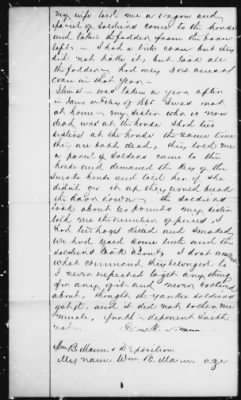 my wife last me a wagon and
of Soldiers came to the house
and taken the fodder from the house
left — I had a little corn but they
did not bother it, but took all
the fodder, had very poor
corn in that year —
Item — was taken a year after
in Jany or Feby of 1865 I was not
at home — my sister who is now
dead was at the house I had two
sisters at the house the same time
they are both dead, they told me
a parcel of soldiers came to the
house and demanded the key of the
smoke house and told her if she
didn't give it up they would break
the door down — the soldiers
took about pounds my sister
told me the number of pieces. I
had ten hogs killed and smoked,
we had used some little and the
soldiers took about I don't know
what command they belonged to
I never expected to get any thing
for any of it and never bothered
about, thought the yankee soldiers
got it, and it did not bother me
much, further deponent saith
not. Mann
Wm B. Mann's Deposition
My name Wm B. Mann age